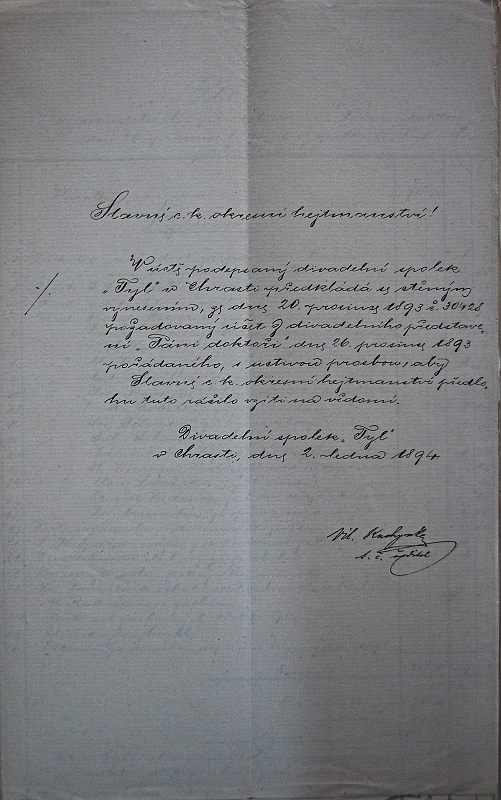 Slavné c. k. okresní hejtmanství!
V úctě podepsaný divadelní spolek
"Tyl" v Chrasti předkládá se stěným
vynesením, ze dne 20. prosince 1893 č. 30428
požadovaný účet z divadelního představe-
ní "Páni doktoři" dne 26. prosince 1893
pořádaného, s uctivou prosbou, aby
Slavné c. k. okresní hejtmanství předlo-
hu tuto ráčilo vzíti na vědomí.
Divadelní spolek "Tyl"
v Chrasti, dne 2. ledna 1894
t. č. ředitel